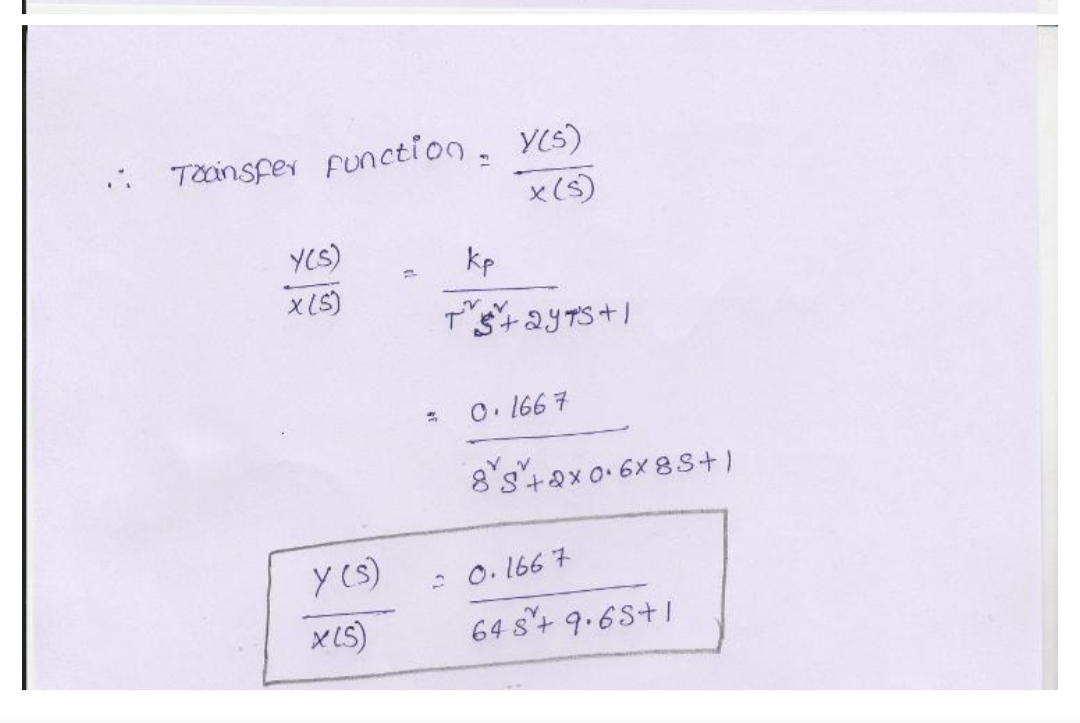 ∴ Transfer Function = Y(S)/X(S)
Y(S)/X(S) = Kp/(T²S²+2ζTS+1)
= 0.1667/(8²S²+2×0.6×8S+1)
Y(S)/X(S) = 0.1667/(64S²+9.6S+1)